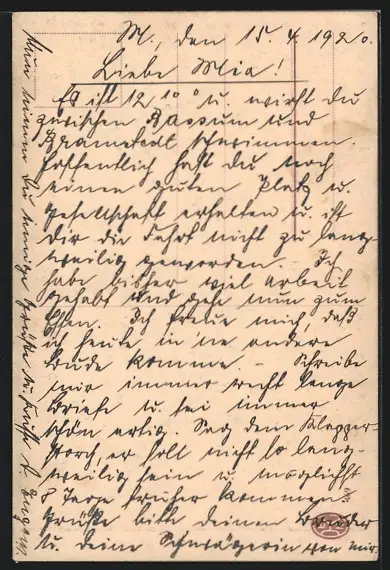 M., den 15.4.1920.
Liebe Mia!
Es ist 12 10 u. wirst du
zwischen Bassum und
Bramstedt schwimmen.
Hoffentlich hast du noch
einen guten Platz u.
Gesellschaft erhalten u. ist
dir die Fahrt nicht zu lang-
weilig geworden. Ich
habe bisher viel Arbeit
gehabt und gehe nun zum
Essen. Ich freue mich, daß
ich heute in 'ne andere
Bude komme. – Schreibe
mir immer recht lange
Briefe u. sei immer
schön artig. Sag dem Klapper-
storch, er soll nicht so lang-
weilig sein u. möglichst
8 Tage früher kommen.
Grüße bitte deinen Bruder
u. deine Schwägerin von mir.
Nun nimm du innige Grüße